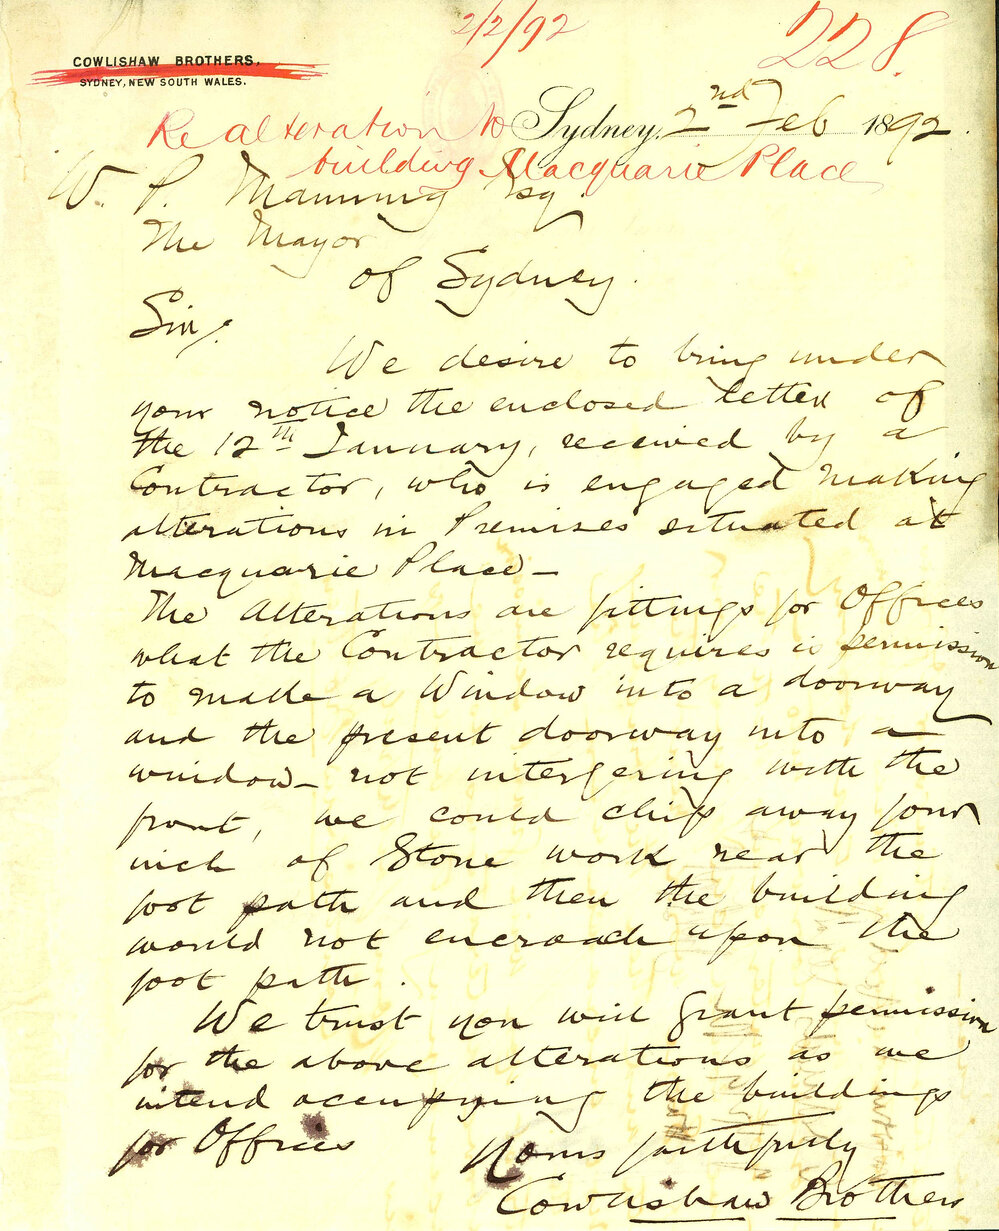 2/2/92
228.
COWLISHAW BROTHERS,
SYDNEY, NEW SOUTH WALES.
Sydney, 2nd Feb 1892.
Re alteration to
building Macquarie Place
W. P. Manning Esq.
The Mayor
of Sydney.
Sir,
We desire to bring under
your notice the enclosed letter of
the 12th January, received by a
Contractor, who is engaged making
alterations in Premises situated at
Macquarie Place_
The Alterations are fittings for Offices
what the Contractor requires is permission
to make a Window into a doorway
and the present doorway into a
window_ not interfering with the
front, we could chip away four
inch of Stone work near the
foot path and then the building
would not encroach upon the
foot path.
We trust you will grant permission
for the above alterations as we
intend occupying the buildings
for Offices
Yours faithfully
Cowlishaw Brothers